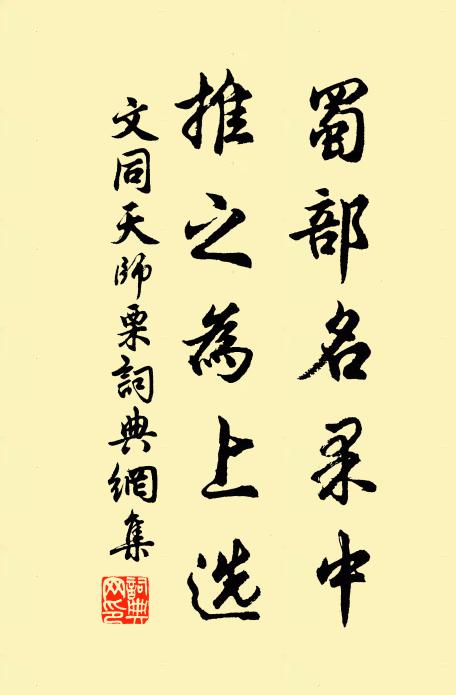 蜀部名果中
推之為上选
文同天師栗詞典網集
詞典网印